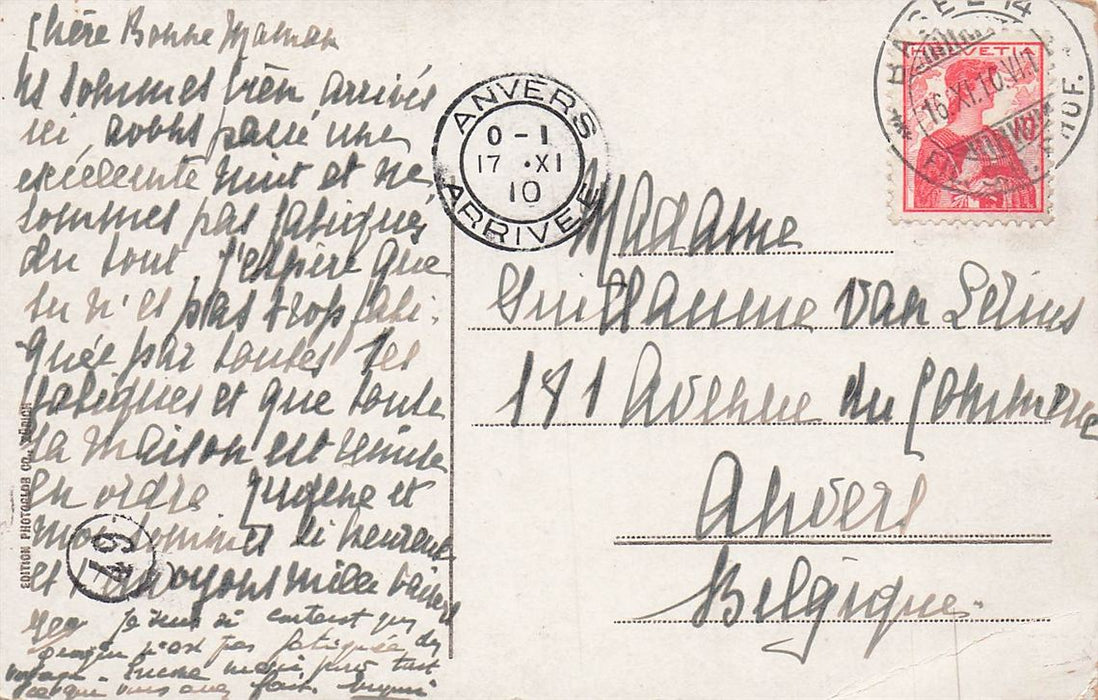 Chère Bonne Maman
Ns sommes bien arrivés
ici, avons passé une
excellente nuit et ne
sommes pas fatigués
du tout. J'espère que
tu n'es pas trop fati-
guée par toutes les
fatigues et que toute
la maison est remise
en ordre Eugène et
moi sommes si heureux
et t'envoyons mille baisers
Je suis si content que
n'est pas fatiguée du
voyage. Encore merci pour tout
ce que vous avez fait. Eugène
EDITION PHOTOGLOB CO., ZÜRICH
49
ANVERS
0-1
17 · XI
10
ARRIVÉE
BASEL 14
16.XI.10.VII
HELVETIA
10
Madame
Guillaume van Lérius
181 Avenue du Commerce
Anvers
Belgique.